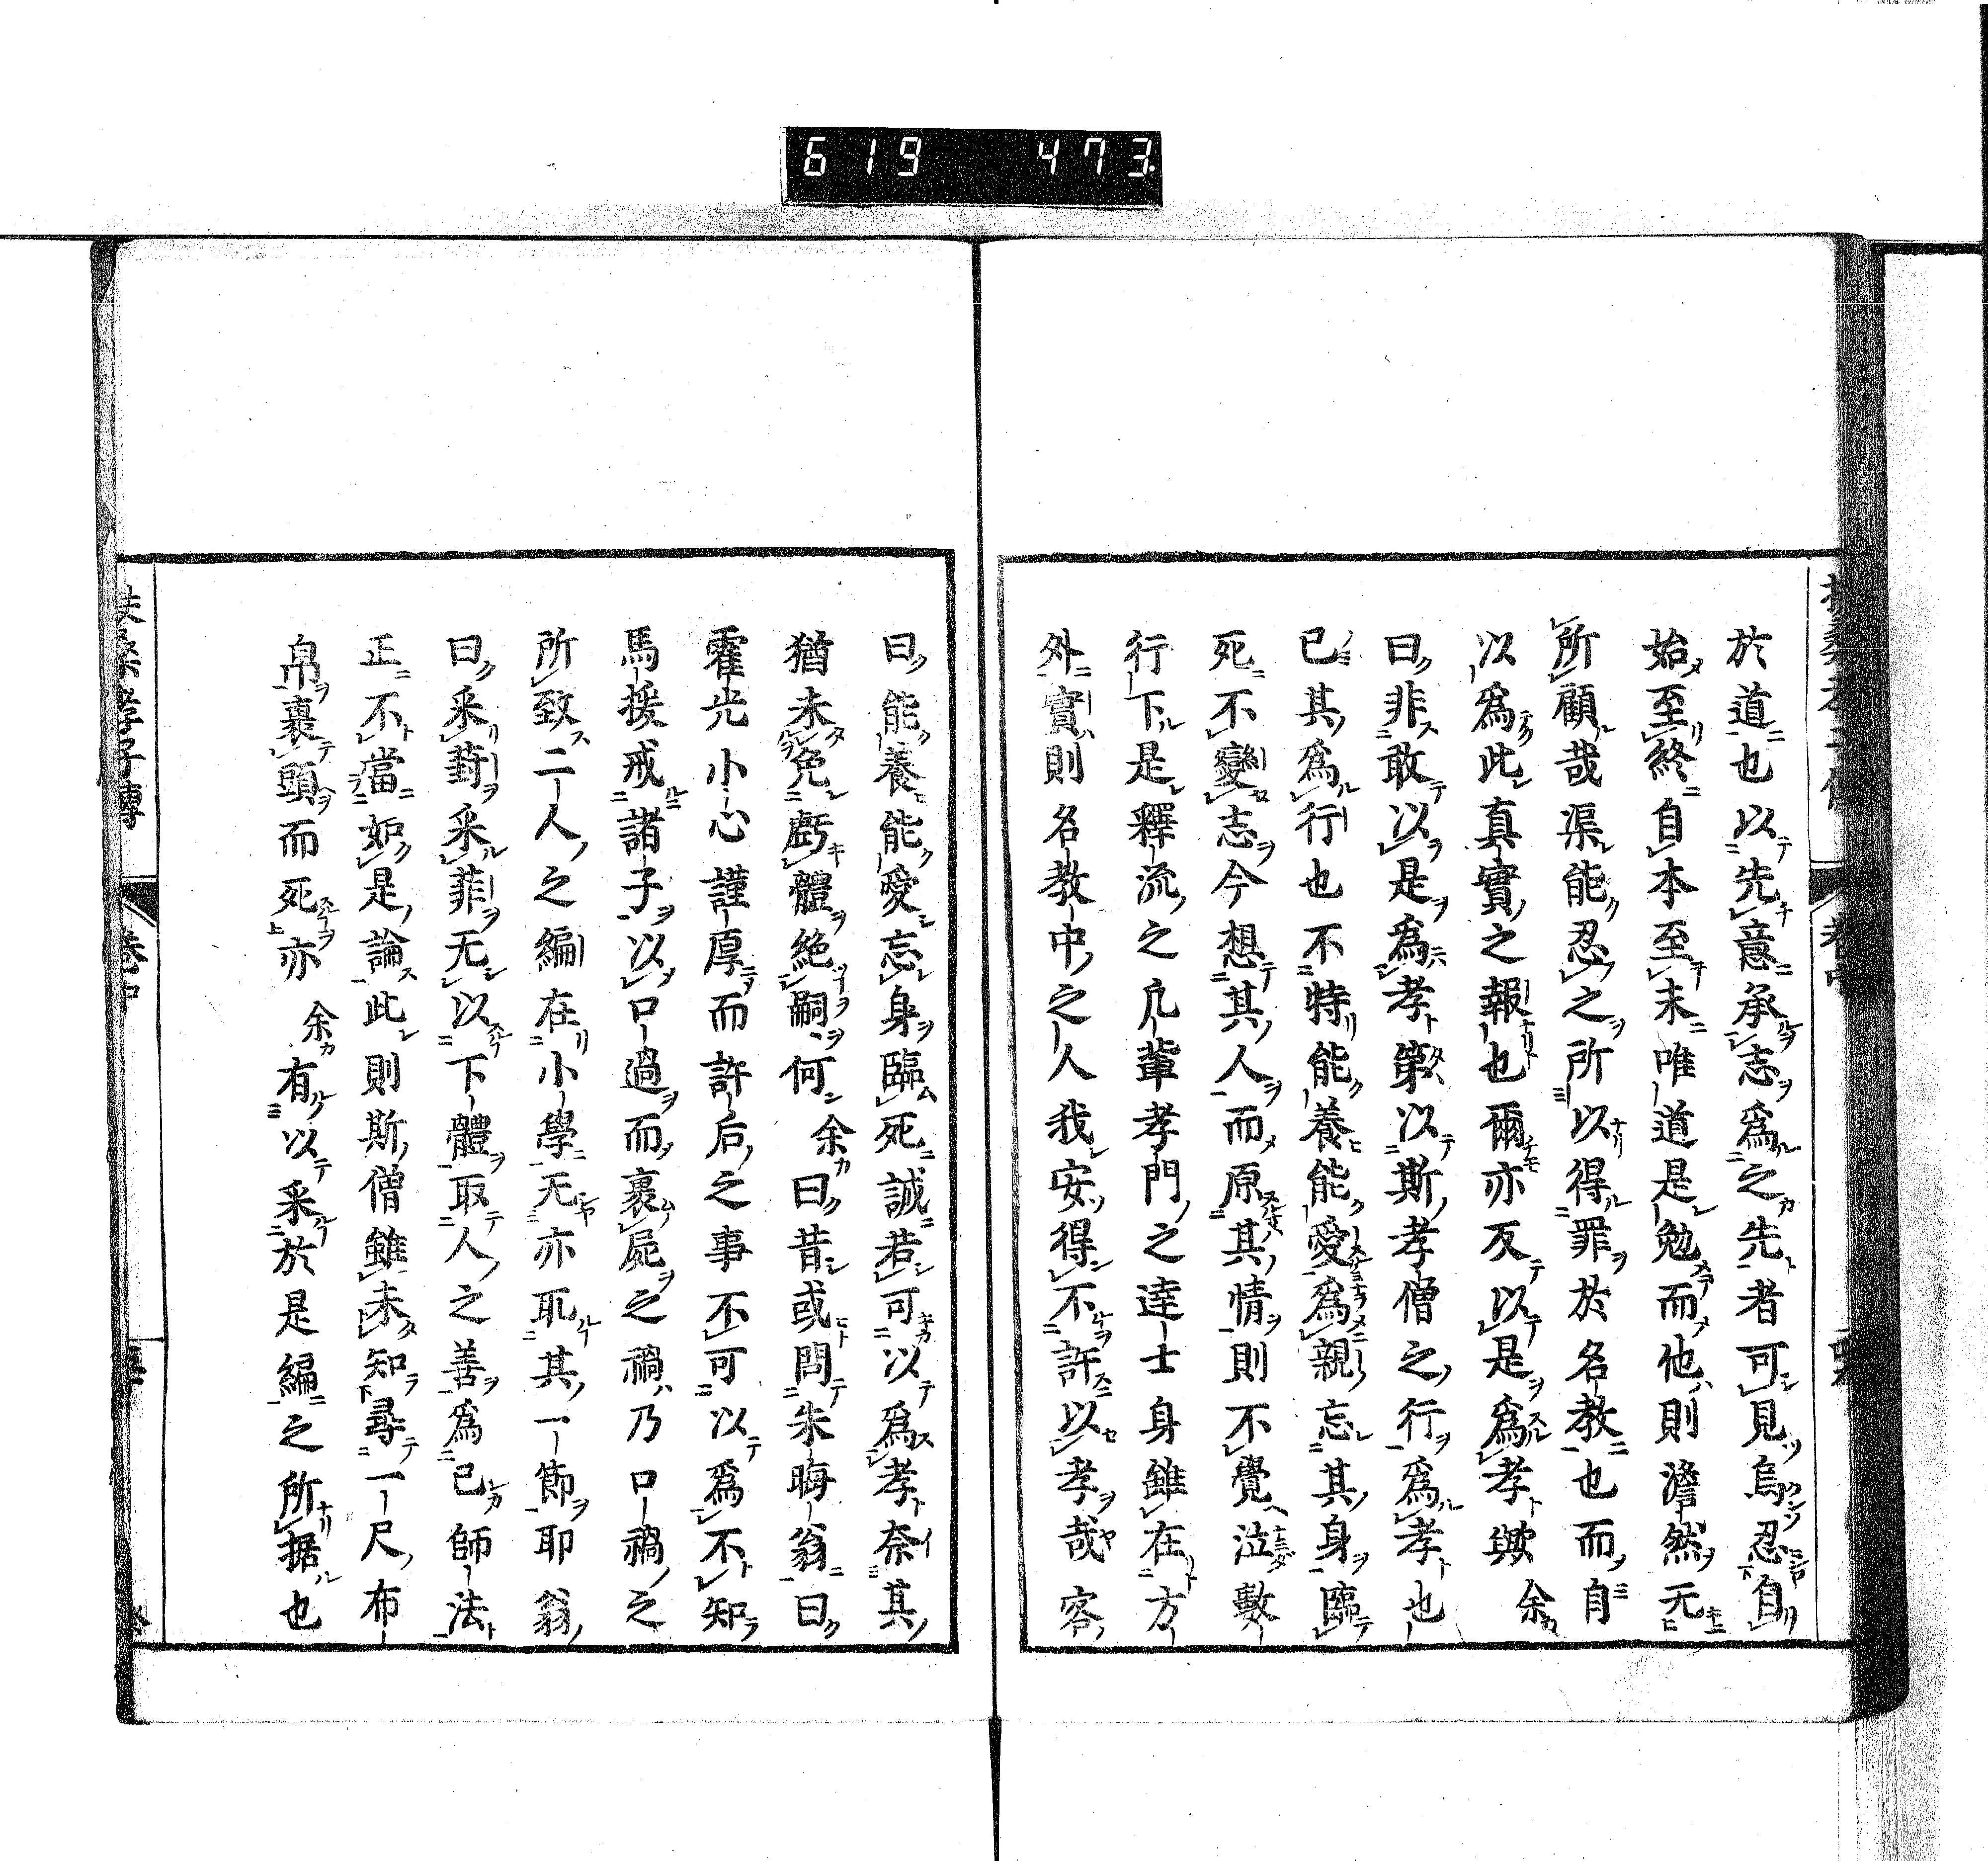 619 473.
於道也以先意承志爲之先者可見烏忍自
始至終自本至末唯道是勉而他則澹然无
所顧哉渠能忍之所以得罪於名教也而自
以爲此真實之報也爾亦反以是爲孝歟余
曰非敢以是爲孝第以斯孝僧之行爲孝也
已其爲行也不特能養能愛爲親忘其身臨
死不變志今想其人而原其情則不覺泣數
行下是釋流之凡輩孝門之達士身雖在方
外實則名教中之人我安得不許以孝哉客
曰能養能愛忘身臨死誠若可以爲孝奈其
猶未免虧體絶嗣何余曰昔或問朱晦翁曰
霍光小心謹厚而許后之事不可以爲不知
馬援戒諸子以口過而裹屍之禍乃口禍之
所致二人之編在小學无亦取其一節耶翁
曰采葑采菲无以下體取人之善爲己師法
正不當如是論此則斯僧雖未知尋一尺布
帛裹頭而死亦余有以采於是編之所据也
扶桑孝子傳 卷中